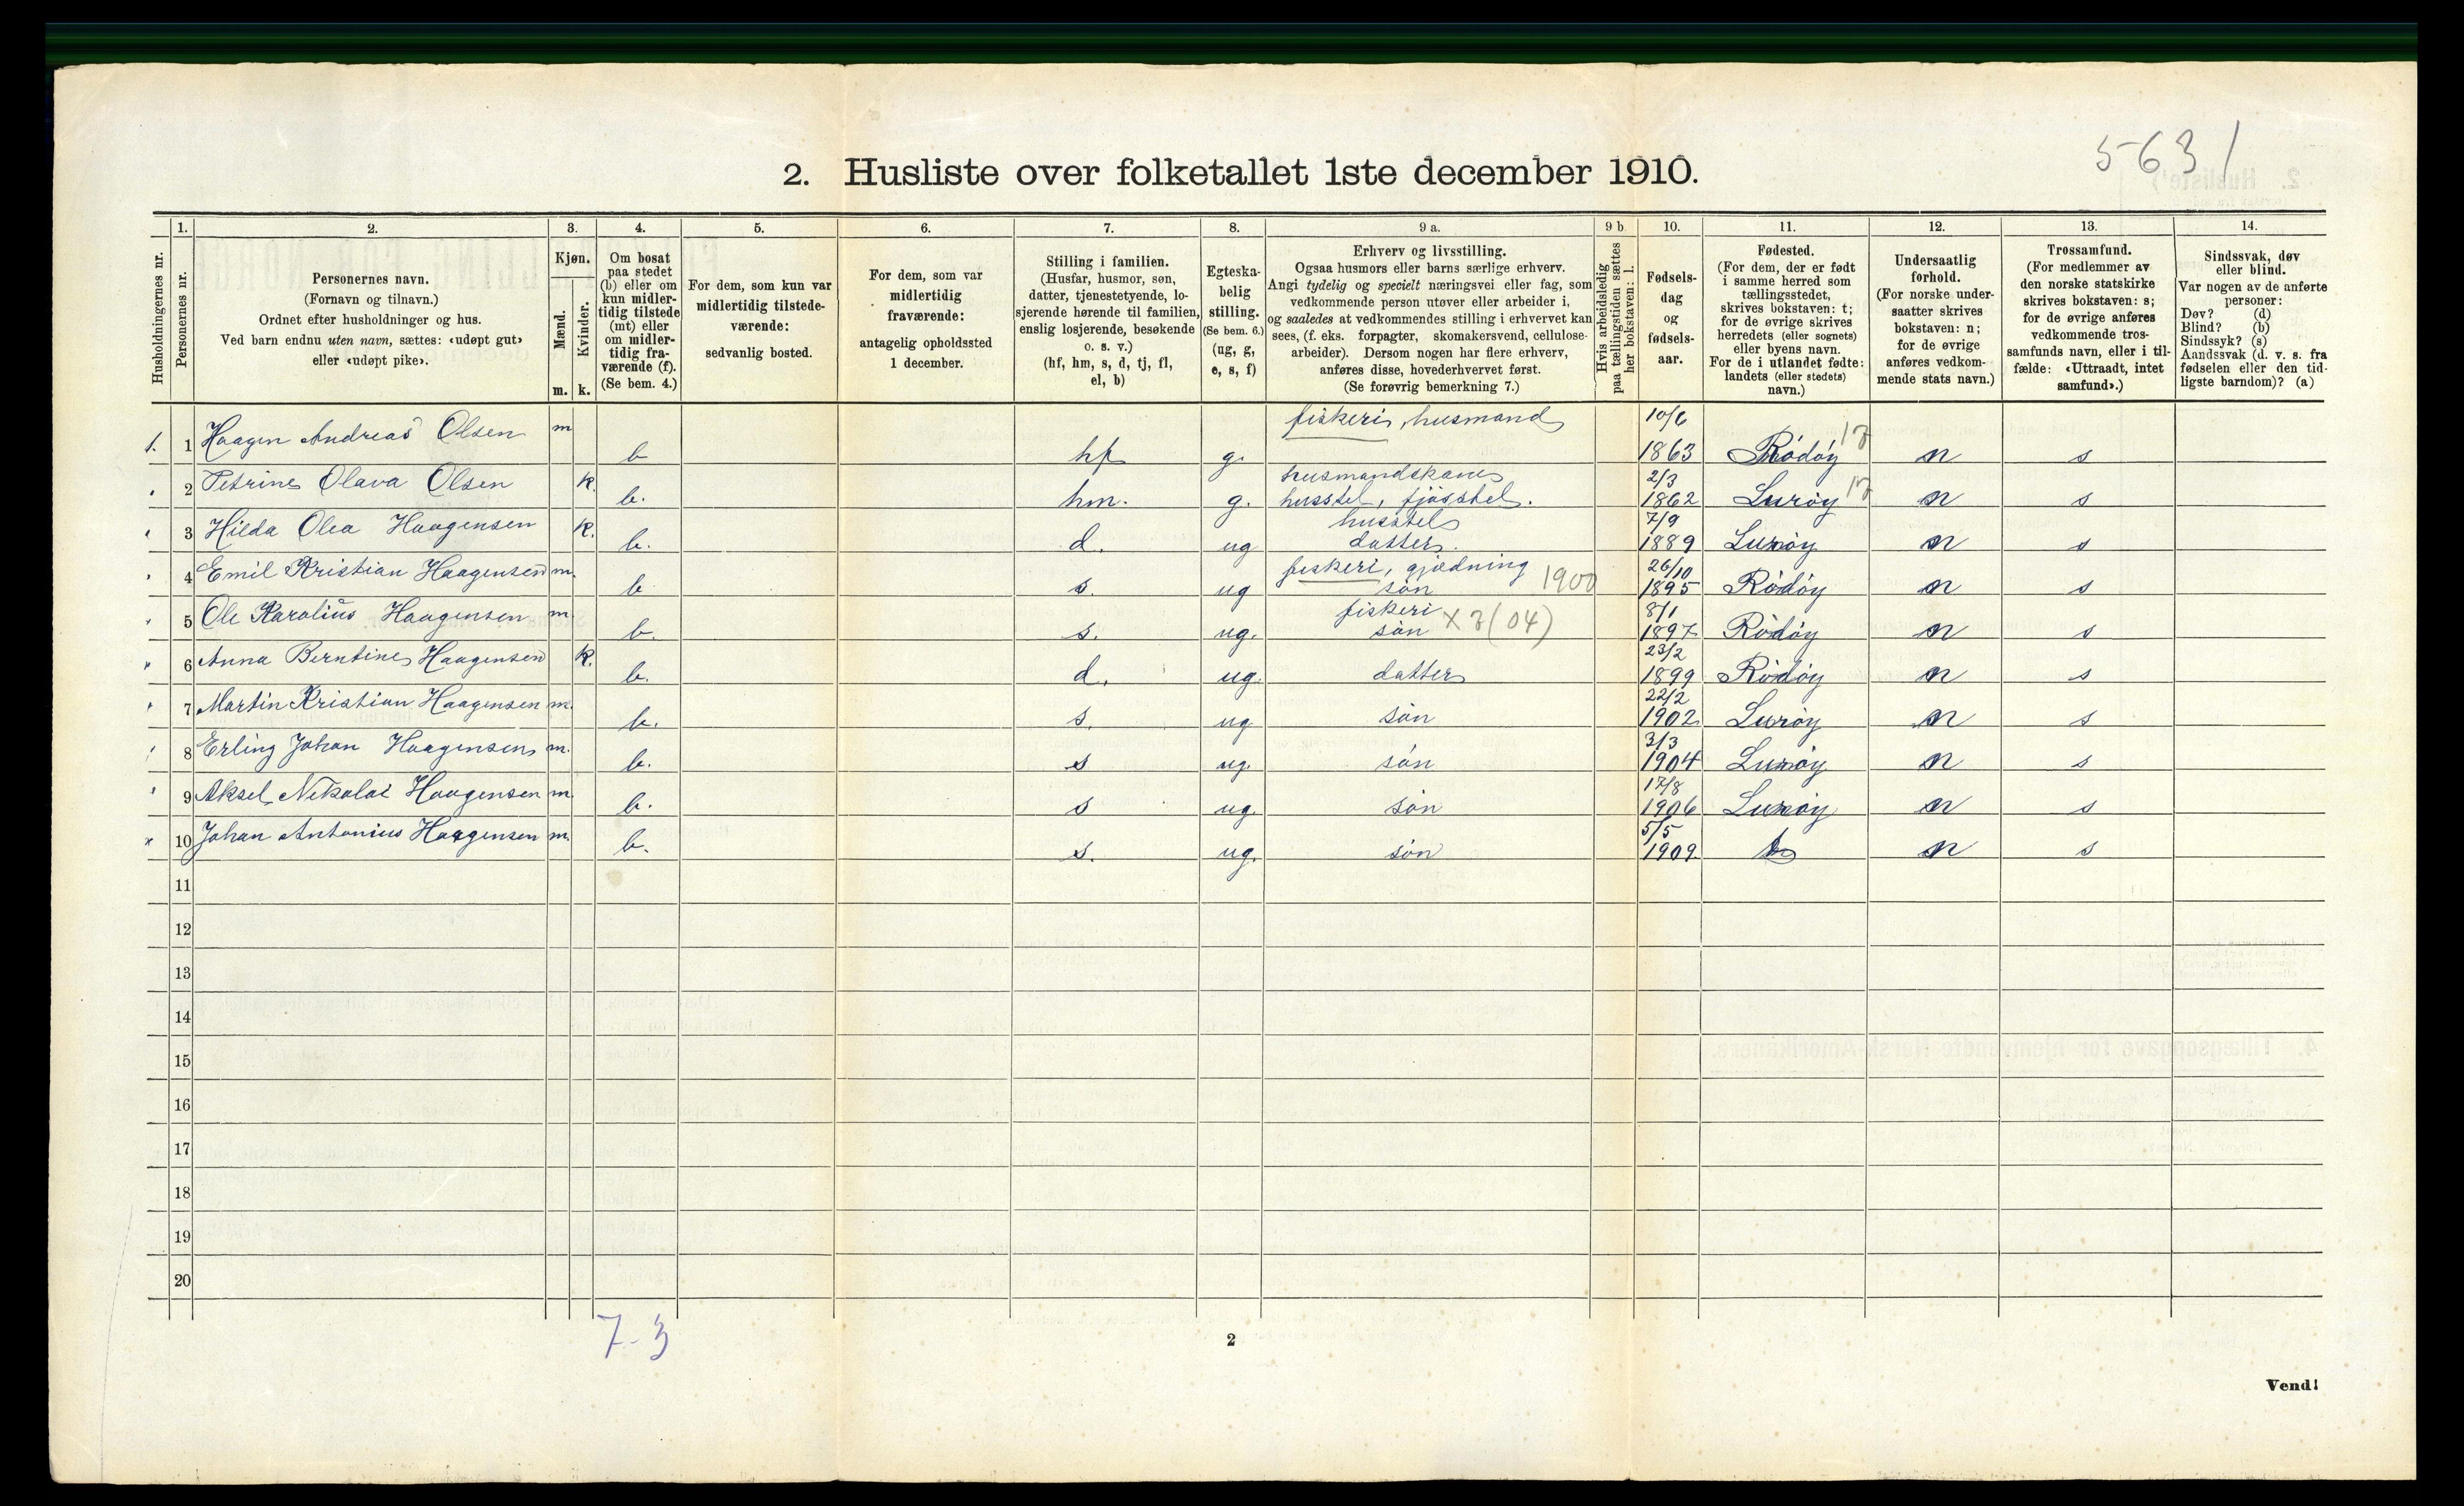 5631
2. Husliste over folketallet 1ste december 1910.
Husholdningernes nr.
1. Personernes nr.
2. Personernes navn.
(Fornavn og tilnavn.)
Ordnet efter husholdninger og hus.
Ved barn endnu uten navn, sættes: «udøpt gut»
eller «udøpt pike».
3. Kjøn.
Mænd. Kvinder.
m. k.
4. Om bosat
paa stedet
(b) eller om
kun midler-
tidig tilstede
(mt) eller
om midler-
tidig fra-
værende (f).
(Se bem. 4.)
5. For dem, som kun var
midlertidig tilstede-
værende:
sedvanlig bosted.
6. For dem, som var
midlertidig
fraværende:
antagelig opholdssted
1 december.
7. Stilling i familien.
(Husfar, husmor, søn,
datter, tjenestetyende, lo-
sjerende hørende til familien,
enslig losjerende, besøkende
o. s. v.)
(hf, hm, s, d, tj, fl,
el, b)
8. Egteska-
belig
stilling.
(Se bem. 6.)
(ug, g,
e, s, f)
9 a. Erhverv og livsstilling.
Ogsaa husmors eller barns særlige erhverv.
Angi tydelig og specielt næringsvei eller fag, som
vedkommende person utøver eller arbeider i,
og saaledes at vedkommendes stilling i erhvervet kan
sees, (f. eks. forpagter, skomakersvend, cellulose-
arbeider). Dersom nogen har flere erhverv,
anføres disse, hovederhvervet først.
(Se forøvrig bemerkning 7.)
9 b. Hvis arbeidsledig
paa tællingstiden sættes
her bokstaven: l.
10. Fødsels-
dag
og
fødsels-
aar.
11. Fødested.
(For dem, der er født
i samme herred som
tællingsstedet,
skrives bokstaven: t;
for de øvrige skrives
herredets (eller sognets)
eller byens navn.
For de i utlandet fødte:
landets (eller stedets)
navn.)
12. Undersaatlig
forhold.
(For norske under-
saatter skrives
bokstaven: n;
for de øvrige
anføres vedkom-
mende stats navn.)
13. Trossamfund.
(For medlemmer av
den norske statskirke
skrives bokstaven: s;
for de øvrige anføres
vedkommende tros-
samfunds navn, eller i til-
fælde: «Uttraadt, intet
samfund».)
14. Sindssvak, døv
eller blind.
Var nogen av de anførte
personer:
Døv? (d)
Blind? (b)
Sindssyk? (s)
Aandssvak (d. v. s. fra
fødselen eller den tid-
ligste barndom)? (a)
1. 1 Haagen Andreas Olsen m b hf g. fiskeri, husmand 10/6 1863 Rödöy 17 n s
2 Petrine Olava Olsen k. b. hm. g. husmandskone husstel, fjösstel. 2/3 1862 Luröy 17 n s
3 Hilda Olea Haagensen k. b. d. ug husstel datter. 7/9 1889 Luröy n s
4 Emil Kristian Haagensen m. b s. ug fiskeri, gjødning sön 1900 26/10 1895 Rödöy n s
5 Ole Karolius Haagensen m. b. s. ug. fiskeri sön x 3 (04) 8/1 1897 Rödöy n s
6 Anna Berntine Haagensen k. b. d. ug. datter 23/2 1899 Rödöy n s
7 Martin Kristian Haagensen m. b. s. ug. sön 22/2 1902 Luröy n s
8 Erling Johan Haagensen m. b. s ug. sön 3/3 1904 Luröy n s
9 Aksel Nikolai Haagensen m. b. s ug. sön 17/8 1906 Luröy n s
10 Johan Antonius Haagensen m. b. s. ug. sön 5/5 1909 n s
11
12
13
14
15
16
17
18
19
20
7-3
2
Vend!